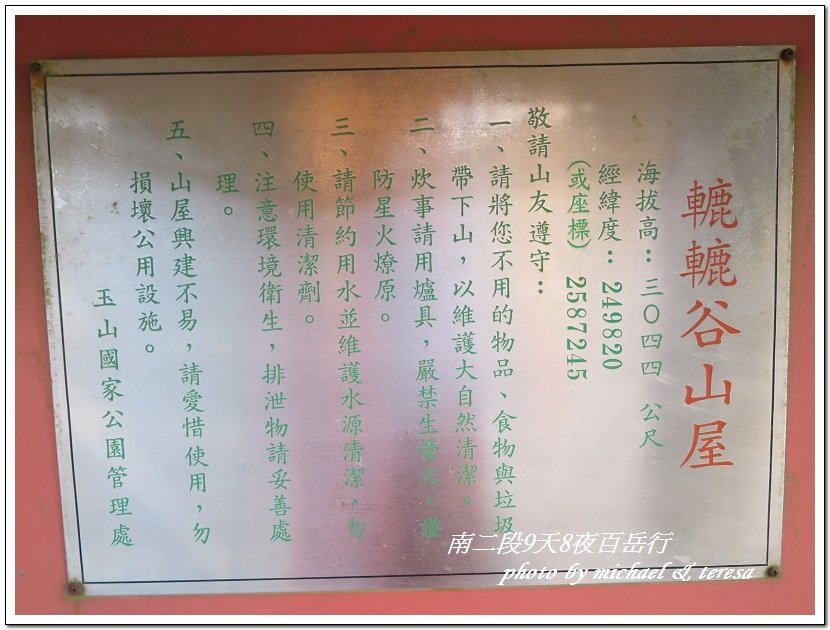 轆轆谷山屋
海拔高：三〇四四 公尺
經緯度：249820
(或座標) 2587245
敬請山友遵守：
一、請將您不用的物品、食物與垃圾
帶下山，以維護大自然清潔。
二、炊事請用爐具，嚴禁生營火。謹
防星火燎原。
三、請節約用水並維護水源清潔，勿
使用清潔劑。
四、注意環境衛生，排泄物請妥善處
理。
五、山屋興建不易，請愛惜使用，勿
損壞公用設施。
玉山國家公園管理處
南二段9天8夜百岳行
photo by michael & teresa